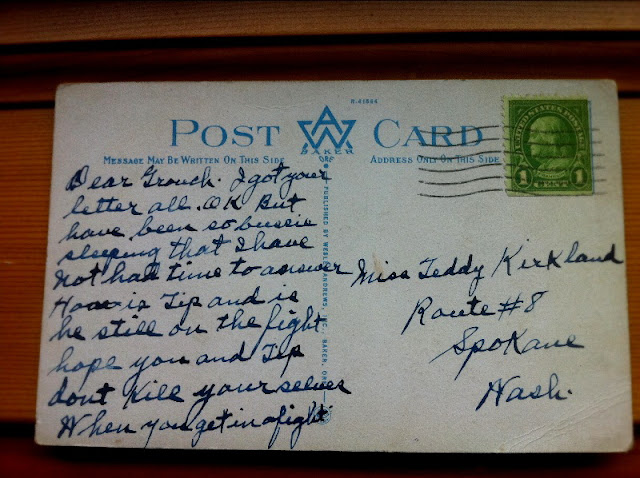 H-41864
POST CARD
BAKER
ORE
MESSAGE MAY BE WRITTEN ON THIS SIDE
ADDRESS ONLY ON THIS SIDE
UNITED STATES POSTAGE
1 CENT 1
Dear Grouch. I got your
letter all. O.K. But
have been so busie
sleeping that I have
not had time to answer
How is Tip and is
he still on the fight
hope you and Tip
dont kill yourselves
When you get in a fight
PUBLISHED BY ANDREWS, INC., BAKER, ORE.
Miss Teddy Kirkland
Route #8
Spokane
Wash.